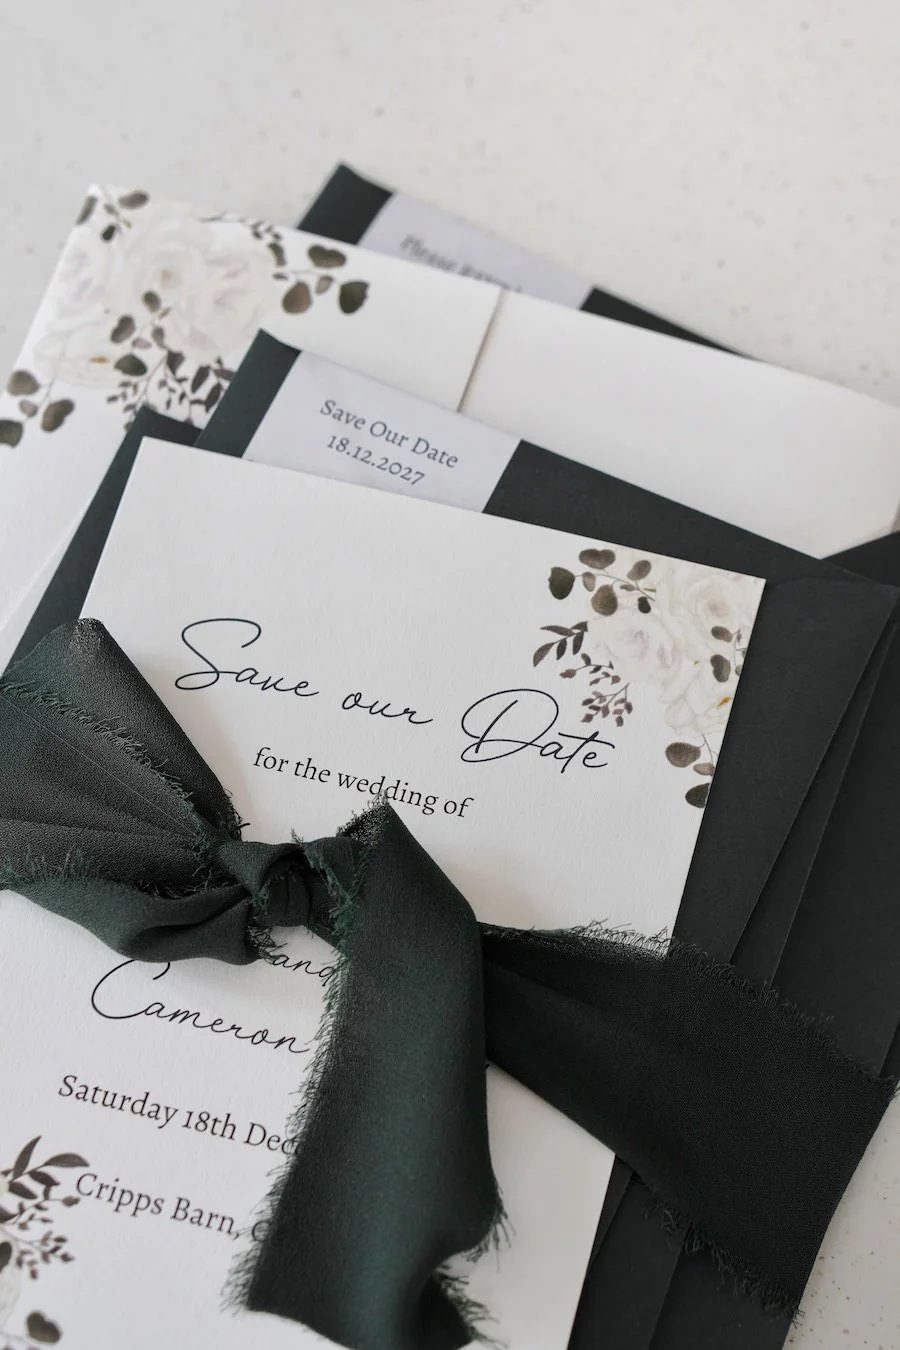 Please
Save Our Date
18.12.2027
Save our Date
for the wedding of
and
Cameron
Saturday 18th Dec
Cripps Barn,